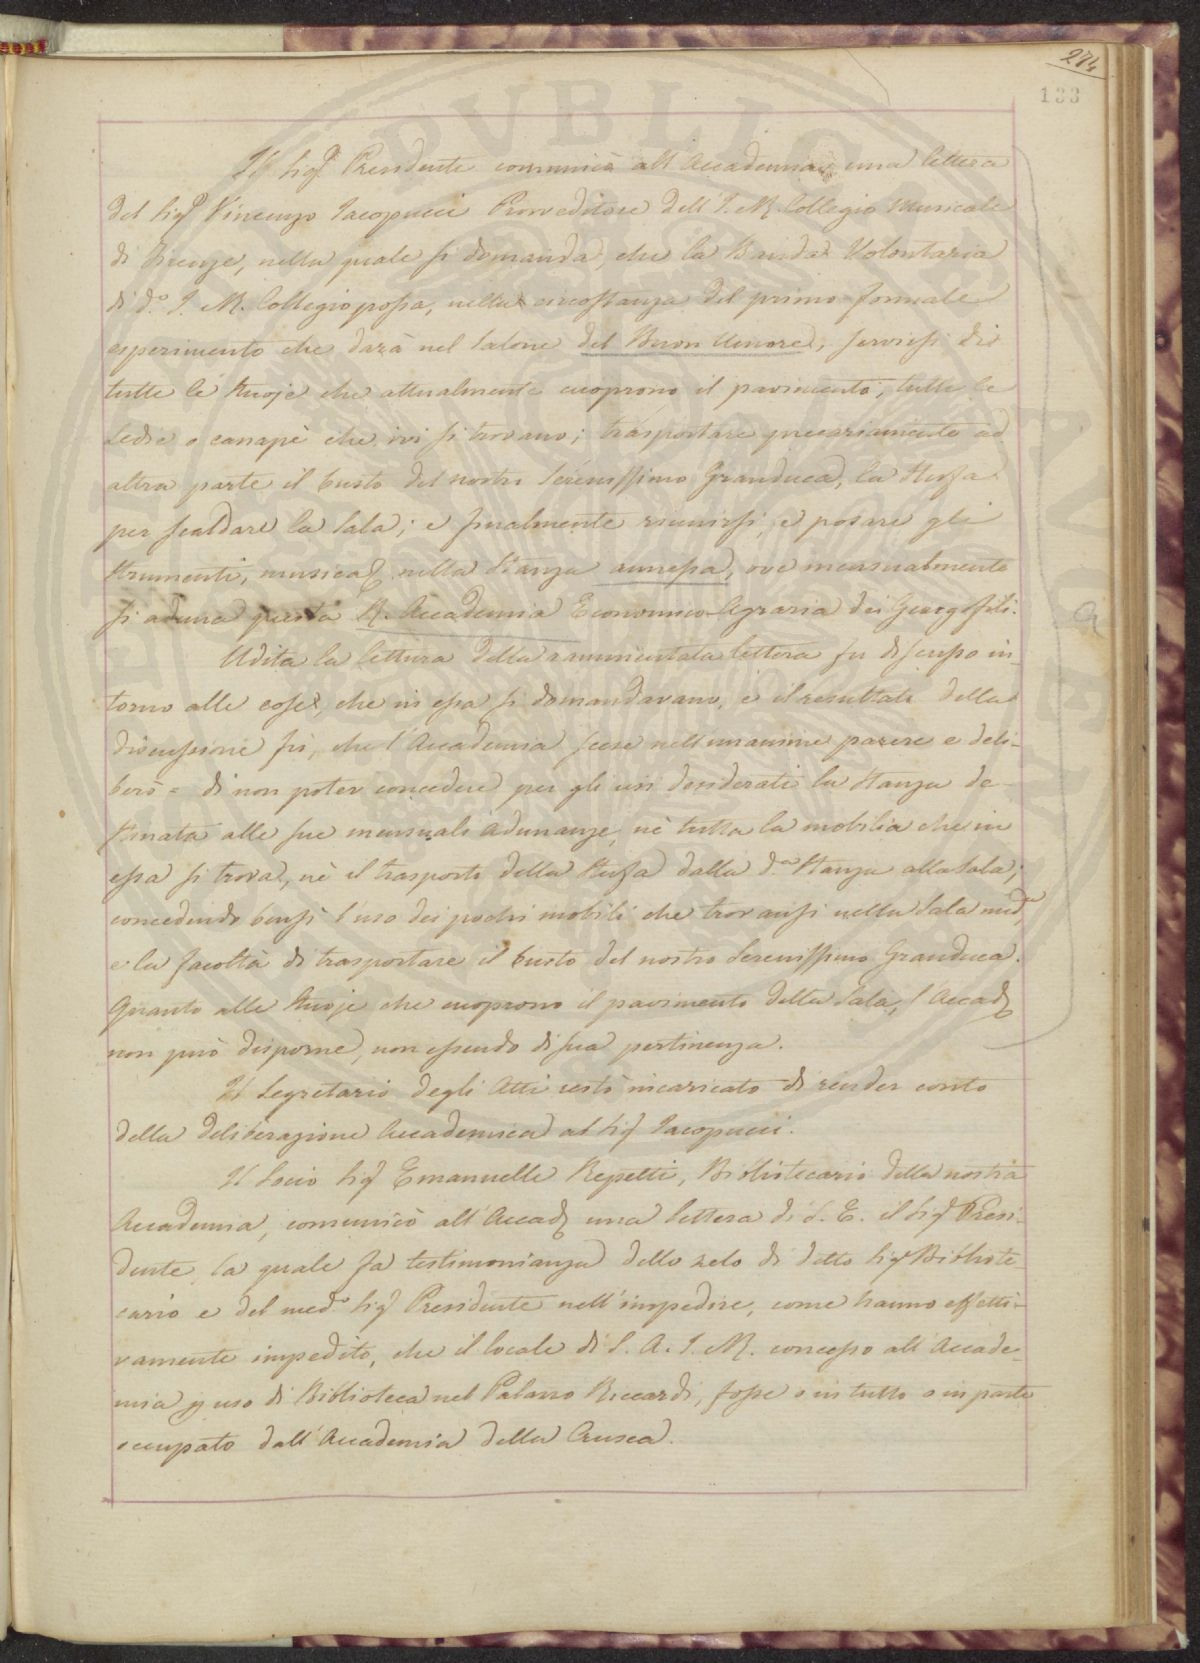 274
133
Il Sig.r Presidente comunicò all'Accademia una lettera
del Sig.r Vincenzo Iacopucci Provveditore dell'I. e R. Collegio Musicale
di Firenze, nella quale si domanda, che la Banda Volontaria
di d.o I. e R. Collegio possa, nella circostanza del primo formale
esperimento che darà nel Salone del Buon Umore, servirsi di
tutte le stuoje che attualmente cuoprono il pavimento; tutte le
sedie o canapè che ivi si trovano; trasportare precariamente ad
altra parte il busto del nostro Serenissimo Granduca, la stufa
per scaldare la sala; e finalmente riunirsi, e posare gli
strumenti, musica nella stanza annessa, ove mensualmente
si aduna questa R. Accademia Economico-Agraria dei Georgofili.
Udita la lettura della rammentata lettera fu discusso in-
torno alle cose, che in essa si domandavano, e il resultato della
discussione fù, che l'Accademia scese nell'unanime parere e deli-
berò = di non poter concedere per gli usi desiderati la stanza de-
stinata alle sue mensuali adunanze, nè tutta la mobilia che in
essa si trova, nè il trasporto della stufa dalla d.a stanza alla sala;
concedendo bensì l'uso dei pochi mobili che trovansi nella sala med.a
e la facoltà di trasportare il busto del nostro Serenissimo Granduca.
Quanto alle stuoje che cuoprono il pavimento della sala, l'Accad.
non può disporne, non essendo di sua pertinenza.
Il Segretario degli Atti restò incaricato di render conto
della deliberazione Accademica al Sig. Iacopucci.
Il Socio Sig. Emanuelle Repetti, Bibliotecario della nostra
Accademia, comunicò all'Accad. una lettera di S. E. il Sig. Presi-
dente, la quale fa testimonianza dello zelo di detto Sig. Bibliote-
cario e del med.o Sig. Presidente nell'impedire, come hanno effetti-
vamente impedito, che il locale di S. A. I. e R. concesso all'Accade-
mia p uso di Biblioteca nel Palazzo Riccardi, fosse o in tutto o in parte
occupato dall'Accademia della Crusca.